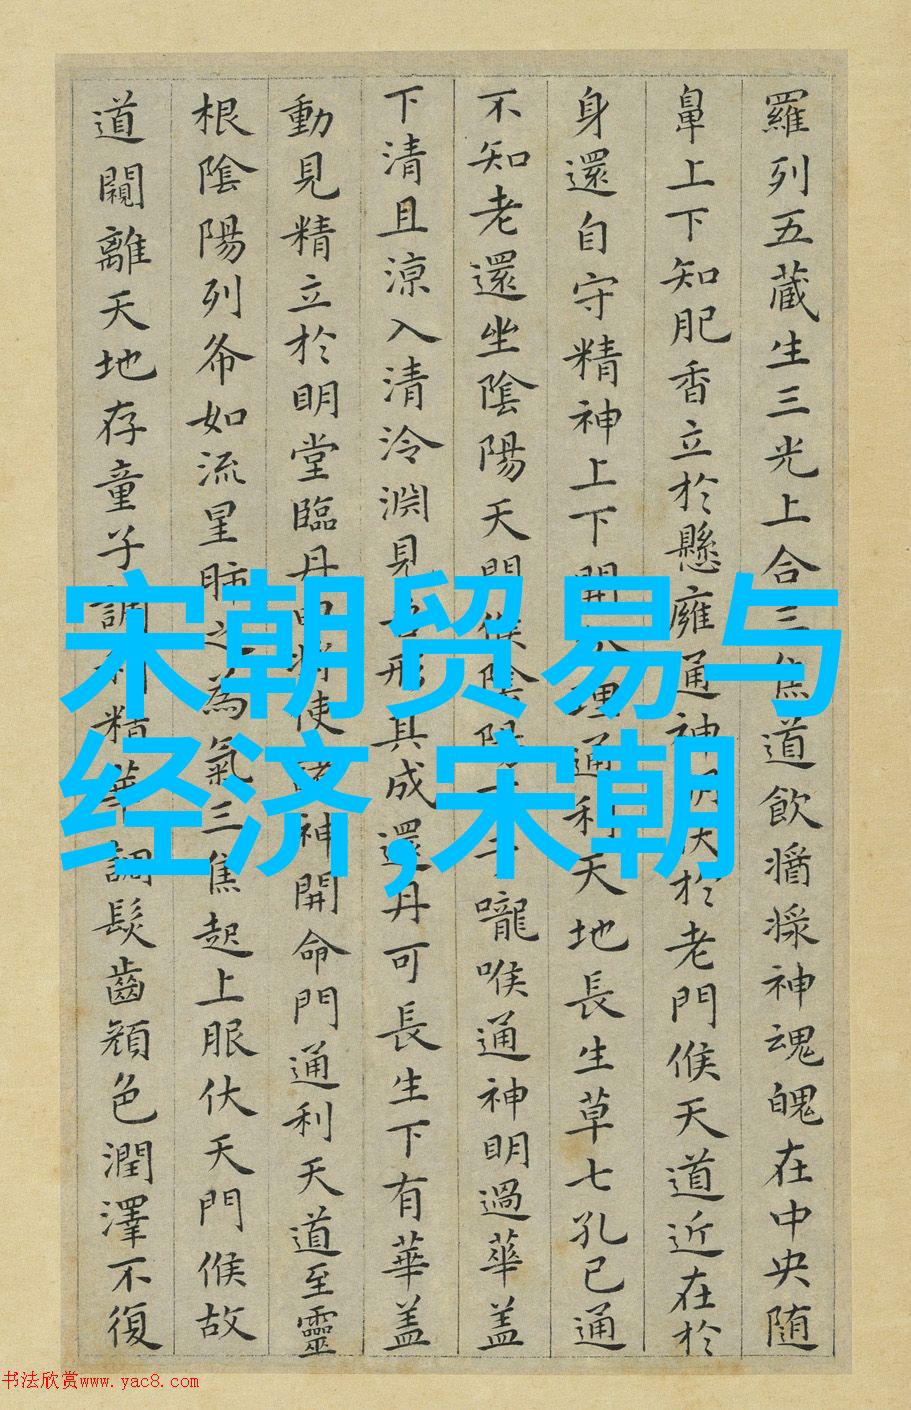 羅列五藏生三光上合三焦道飲醬漿神魂魄在中央随
鼻上下知肥香立於懸癰通神明伏於老門候天道近在於
身還自守精神上下開分理通利天地長生草七孔已通
不知老還坐陰陽天門候陰陽下于嚨喉通神明過華盖
下清且涼入清泠淵見吾形其成還丹可長生下有華盖
動見精立於明堂臨丹田将使諸神開命門通利天道至靈
根陰陽列布如流星肺之為氣三焦起上服伏天門候故
道闚離天地存童子調利精華調髮齒顔色潤澤不復
宋朝贸易与
经济,宋朝
书法欣赏www.yac8.com